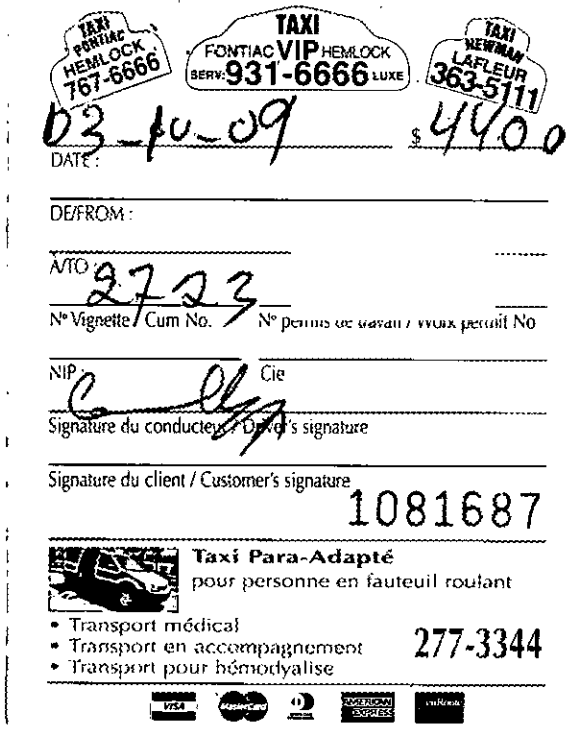 TAXI
PONTIAC
HEMLOCK
767-6666
TAXI
PONTIAC VIP HEMLOCK
SERV: 931-6666 LUXE
TAXI
NEWMAN
LAFLEUR
363-5111
03-10-09
$ 4400
DATE :
DE/FROM :
À/TO :
2723
N° Vignette / Cum No.
N° permis de travail / Work permit No
NIP :
Cie
Signature du conducteur / Driver's signature
Signature du client / Customer's signature
1081687
Taxi Para-Adapté
pour personne en fauteuil roulant
• Transport médical
• Transport en accompagnement
• Transport pour hémodyalise
277-3344
VISA
MasterCard
AMERICAN EXPRESS
enRoute